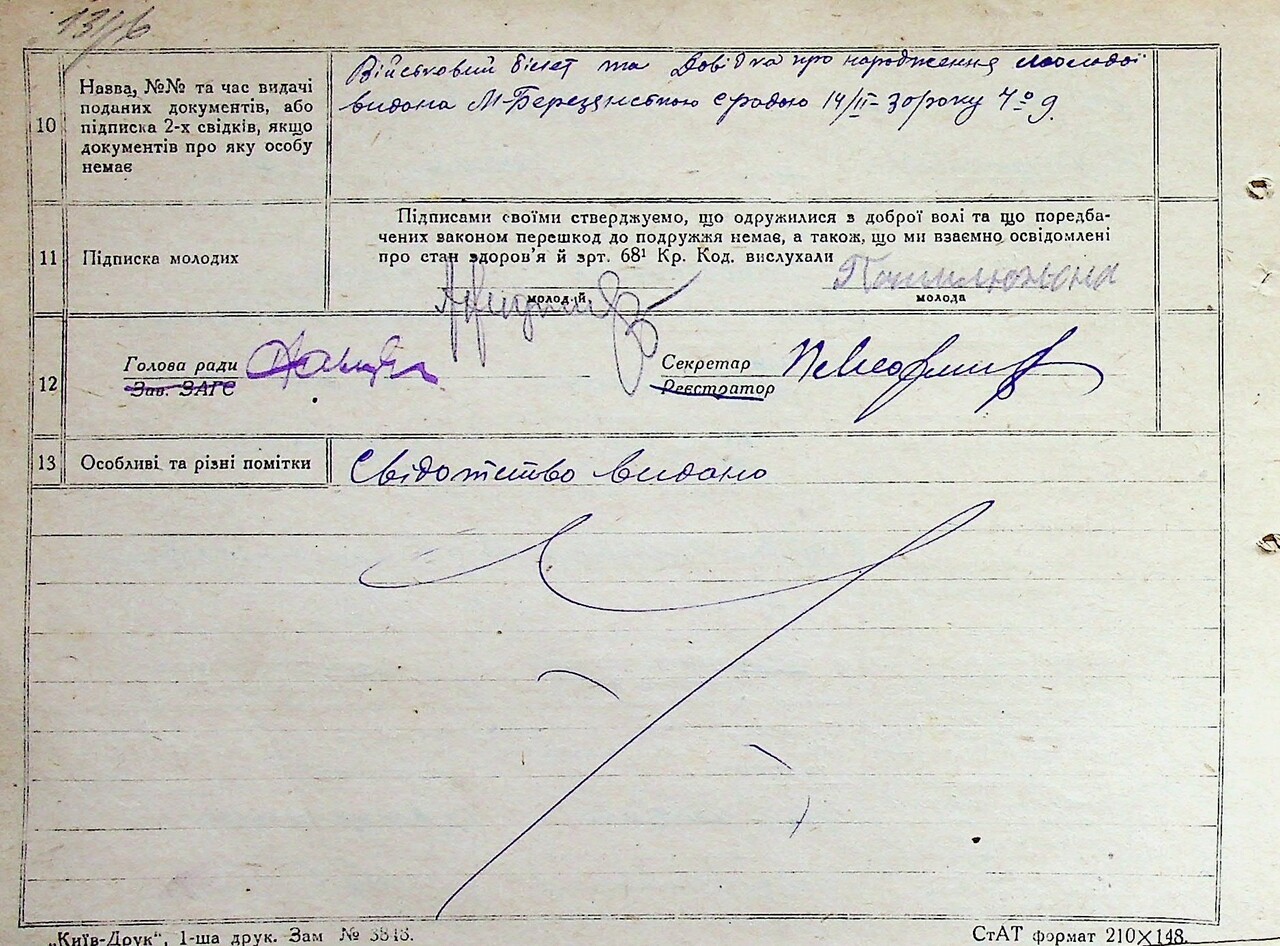 13/16
10
Назва, №№ та час видачі
поданих документів, або
підписка 2-х свідків, якщо
документів про яку особу
немає
Військовий білет та Довідка про народження молодої
видана М-Березанською с радою 14/II-30 року
11
Підписка молодих
Підписами своїми стверджуємо, що одружилися з доброї волі та що передба-
чених законом перешкод до подружжя немає, а також, що ми взаємно освідомлені
про стан здоров'я й зрт. 68¹ Кр. Код. вислухали
молодий
молода
12
Голова ради
Зав. ЗАГС
Секретар
Реєстратор
13
Особливі та різні помітки
Свідотство видано
„Київ-Друк“, 1-ша друк. Зам № 3848.
СтАТ формат 210×148.